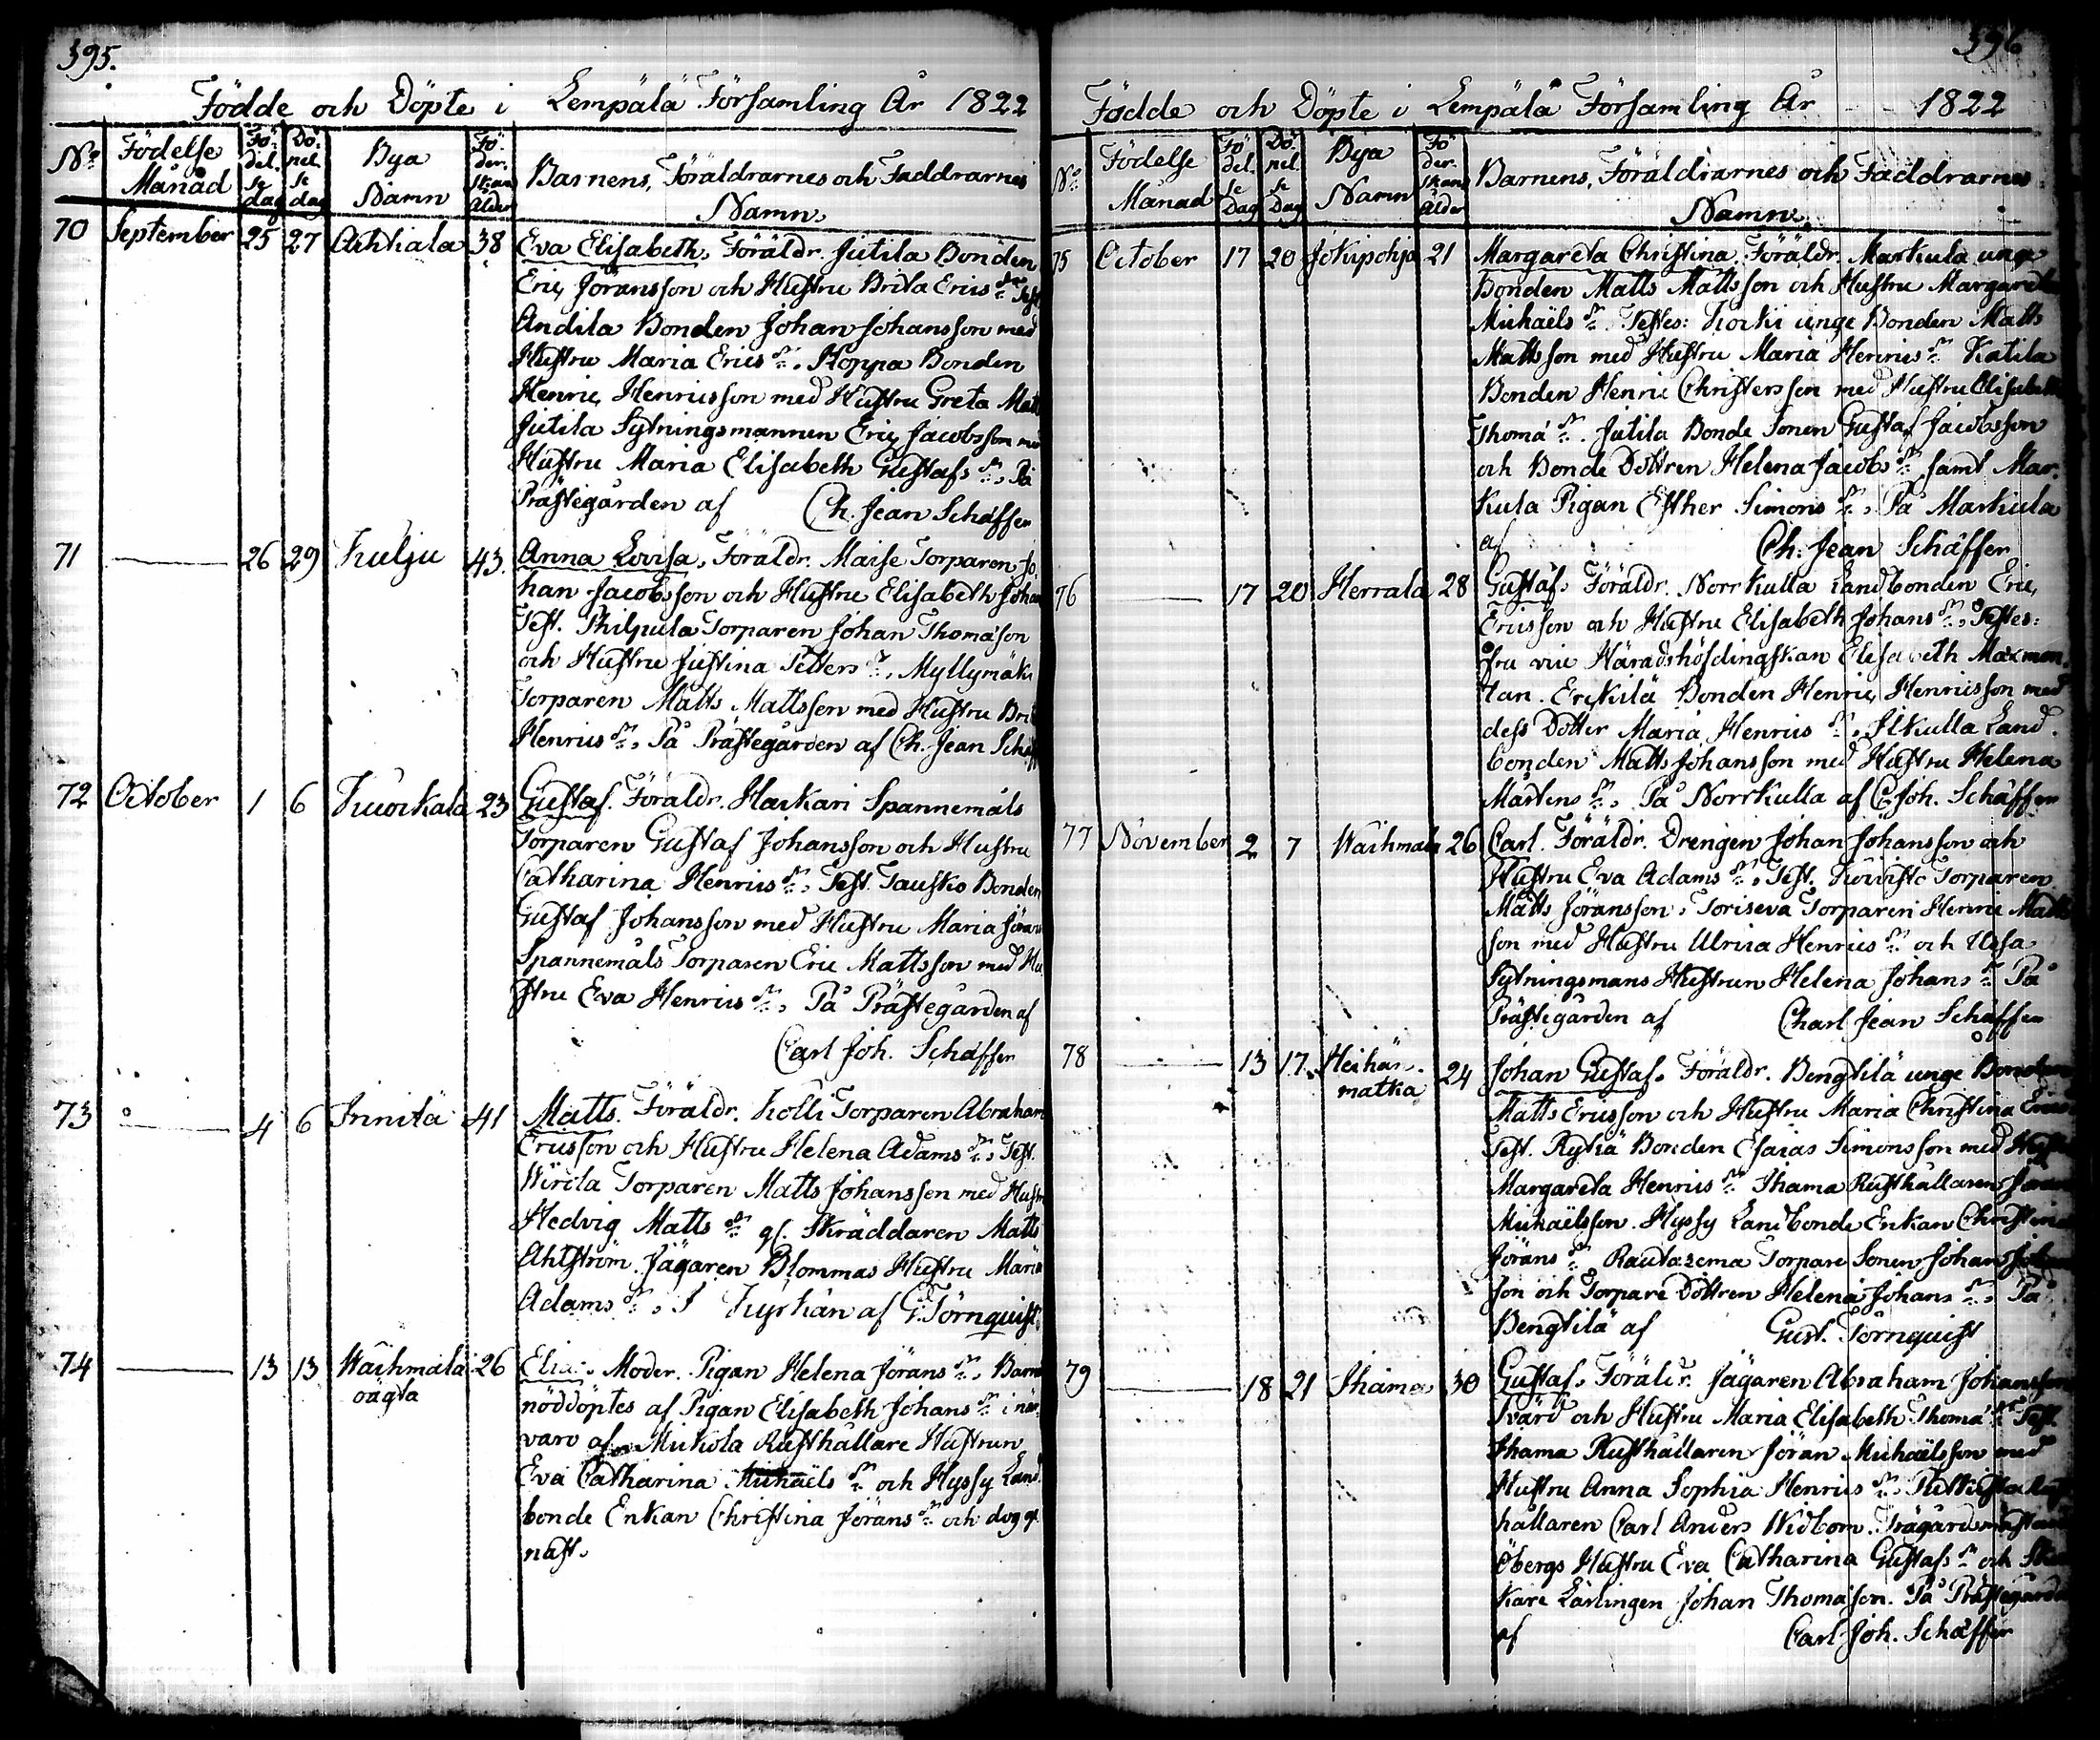 395.
Födde och Döpte i Lempälä Församling År 1822
No Födelse Månad Fö- del- se dag Dö- pel- se dag Bya Namn Fö- der- skans ålder Barnens, Föräldrarnes och Faddrarnes Namn
70 September 25 27 Ahtiala 38 Eva Elisabeth, Föräldr. Jutila Bonden
Eric Jöransson och Hustru Brita Erics dr Test.
Andila Bonden Johan Johansson med
Hustru Maria Erics dr. Hoppa Bonden
Henric Henricsson med Hustru Greta Matts
Jutila Sytningsmannen Eric Jacobsson med
Hustru Maria Elisabeth Gustafs dr. På
Prästegården af Ch. Jean Schäffer
71 26 29 Kulju 43. Anna Lovisa, Föräldr. Maise Torparen Jo-
han Jacobsson och Hustru Elisabeth Johans
Test. Philpula Torparen Johan Thomasson
och Hustru Justina Petters dr, Myllymäki
Torparen Matts Mattsson med Hustru Brita
Henrics dr, På Prästegården af Ch. Jean Schäff
72 October 1 6 Kuorkala 23 Gustaf. Föräldr. Harkari Spannemåls
Torparen Gustaf Johansson och Hustru
Catharina Henrics dr, Test. Tausko Bonden
Gustaf Johansson med Hustru Maria Jörans
Spannemåls Torparen Eric Mattsson med Hu-
stru Eva Henrics dr, På Prästegården af
Carl Joh. Schäffer
73 4 6 Innilä 41 Matts. Föräldr. Kolli Torparen Abraham
Ericsson och Hustru Helena Adams dr, Test.
Torparen Matts Johansson med Hustru
Hedvig Matts dr gl. Skräddaren Matts
Ahlström. Jägaren Blommas Hustru Maria
Adams dr, I Kyrkan af G. Törnquist
74 13 13 Waihmala oägta 26 Elias, Moder. Pigan Helena Jörans dr, Barnet
nöddöptes af Pigan Elisabeth Johans dr i när-
varo af Mukola Rusthållare Hustrun
Eva Catharina Michaels dr och Hyssy Land-
bonde Enkan Christina Jörans dr och dog ge-
nast.
396
Födde och Döpte i Lempälä Församling År 1822
No Födelse Månad Fö- del- se Dag Dö- pel- se Dag Bya Namn Fö- der- skans ålder Barnens, Föräldrarnes och Faddrarnes Namn
75 October 17 20 Jokipohja 21 Margareta Christina, Föräldr. Markula unge
Bonden Matts Mattsson och Hustru Margareta
Michaëls dr. Testes: Korki unge Bonden Matts
Mattsson med Hustru Maria Henrics dr Katila
Bonden Henric Christersson med Hustru Elisabeth
Thomæ dr. Jutila Bonde Sonen Gustaf Jacobsson
och Bonde Dottren Helena Jacobs dr samt Mar-
kula Pigan Esther Simons dr, På Markula
af Ch. Jean Schäffer
76 17 20 Herrala 28 Gustaf, Föräldr. Norrkulla Landbonden Eric
Ericsson och Hustru Elisabeth Johans dr, Testes:
Fru vice Häradshöfdingskan Elisabeth Maxmon-
tan. Erckilä Bonden Henric Henricsson med
dess Dotter Maria Henrics dr, Ilkulla Land-
bonden Matts Johansson med Hustru Helena
Mårtens dr, På Norrkulla af C. Joh. Schäffer
77 November 2 7 Waihmala 26 Carl. Föräldr. Drengen Johan Johansson och
Hustru Eva Adams dr, Test. Koivisto Torparen
Matts Jöransson, Toriseva Torparen Henric Matts
son med Hustru Ulrica Henrics dr och Ussa
Sytningsmans Hustrun Helena Johans dr På
Prästegården af Charl Jean Schäffer
78 13 17. Heihän- matka 24 Johan Gustaf, Föräldr. Bengtilä unge Bonden
Matts Ericsson och Hustru Maria Christina Erics
Test. Rykiä Bonden Esaias Simonsson med Hustru
Margareta Henrics dr Thama Rusthållaren Jöran
Michaëlsson. Hyssy Landbonde Enkan Christina
Jörans dr Torpare Sonen Johan Johans
son och Torpare Dottren Helena Johans dr, På
Bengtilä af Gust. Törnquist
79 18 21 Thama 30 Gustaf, Föräldr. Jägaren Abraham Johansson
Svärd och Hustru Maria Elisabeth Thomæ dr Test.
Thama Rusthållaren Jöran Michaëlsson med
Hustru Anna Sophia Henrics dr, Rust-
hållaren Carl Anders Widbom. Trägårdsmästaren
Öbergs Hustru Eva Catharina Gustafs dr och
kare Lärlingen Johan Thomasson. På Prästegården
af Carl Joh. Schäffer